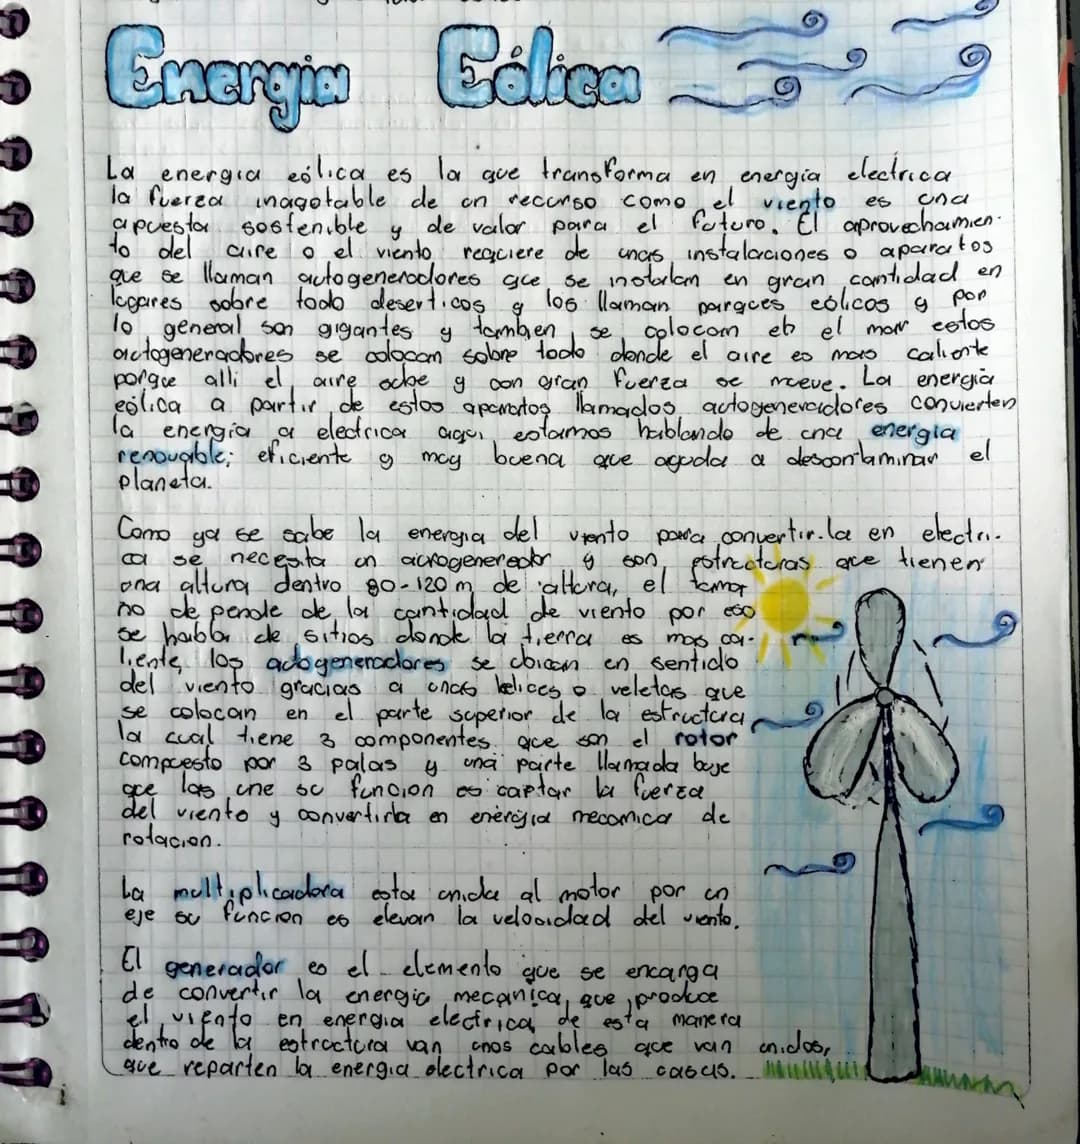 Energia Eólica
La energia eólica es la que transforma en energia electrica
la fuerza inagotable de un recurso como el viento es una
apuesta sostenible y de valor para el futuro. El aprovechamien-
to del aire o el viento requiere de unas instalaciones o aparatos
que se llaman autogeneradores que se instalan en gran cantidad en
lugares sobre todo deserticos y los llaman parques eólicos y por
lo general son gigantes y tambien se colocan eb el mar estos
autogeneradores se colocan sobre todo donde el aire es mas caliente
porque alli el aire sube y con gran fuerza se mueve. La energia
eólica a partir de estos aparatos llamados autogeneradores convierten
la energia a electrica aqui estamos hablando de una energia
renovable; eficiente y muy buena que ayuda a descontaminar el
planeta.
Como ya se sabe la energia del viento para convertir.la en electri-
ca se necesita un aerogenerador y son estructuras que tienen
una altura dentro 80-120 m de altura, el tama
no de pende de la cantidad de viento por eso
se habla de sitios donde la tierra es mas ca-
liente, los autogeneradores se ubican en sentido
del viento gracias a unas helices o veletas que
se colocan en el parte superior de la estructura
la cual tiene 3 componentes que son el rotor
compuesto por 3 palas y una parte llamada buje
que las une su funcion es captar la fuerza
del viento y convertirla en energia mecanica de
rotacion.
La multiplicadora esta unida al motor por un
eje su funcion es elevan la velocidad del viento.
El generador es el elemento que se encarga
de convertir la energia mecanica, que produce
el viento en energia electrica de esta manera
dentro de la estructura van unos cables que van unidos,
que reparten la energia electrica por las casas.